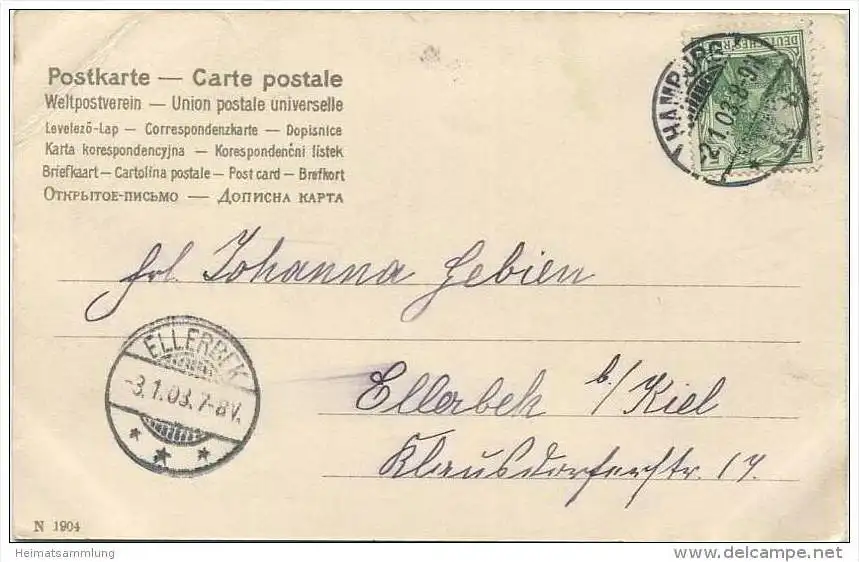 Postkarte — Carte postale
Weltpostverein — Union postale universelle
Levelező-Lap — Correspondenzkarte — Dopisnice
Karta korespondencyjna — Korespondenční lístek
Briefkaart — Cartolina postale — Post card — Brefkort
Открытое-письмо — Дописна карта
DEUTSCHES R
HAMBURG
-2.1.03.8-9
Frl. Johanna Gebien
ELLERBEK
-3.1.03.7-8V.
Ellerbek b/Kiel
Klausdorferstr. 14
N 1904
Heimatsammlung
www.delcampe.net